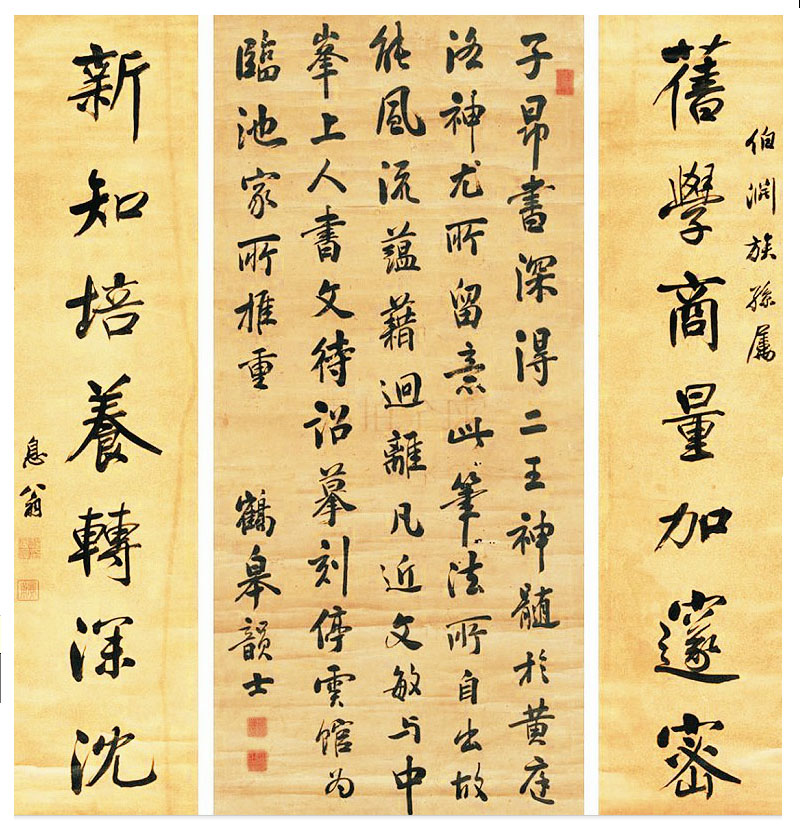 伯淵族孫屬
舊學商量加邃密
子昂書深得二王神髓於黃庭
洛神尤所留意此筆法所自出故
能風流蘊藉迴離凡近文敏与中
峯上人書文待詔摹刻停雲館为
臨池家所推重 鶴皋韻士
新知培養轉深沈
息翁